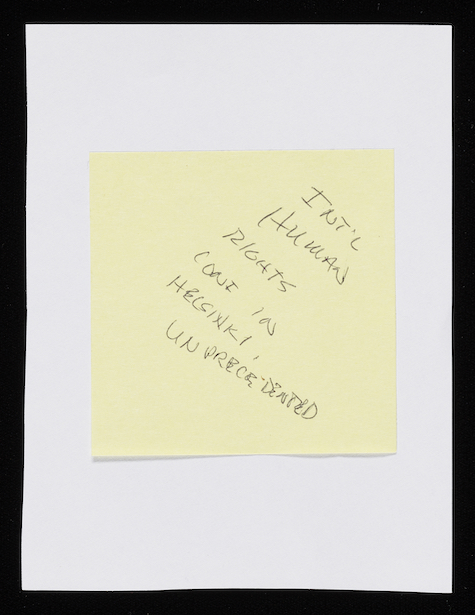 INT'L
HUMAN
RIGHTS
CONF IN
HELSINKI,
UNPRECEDENTED